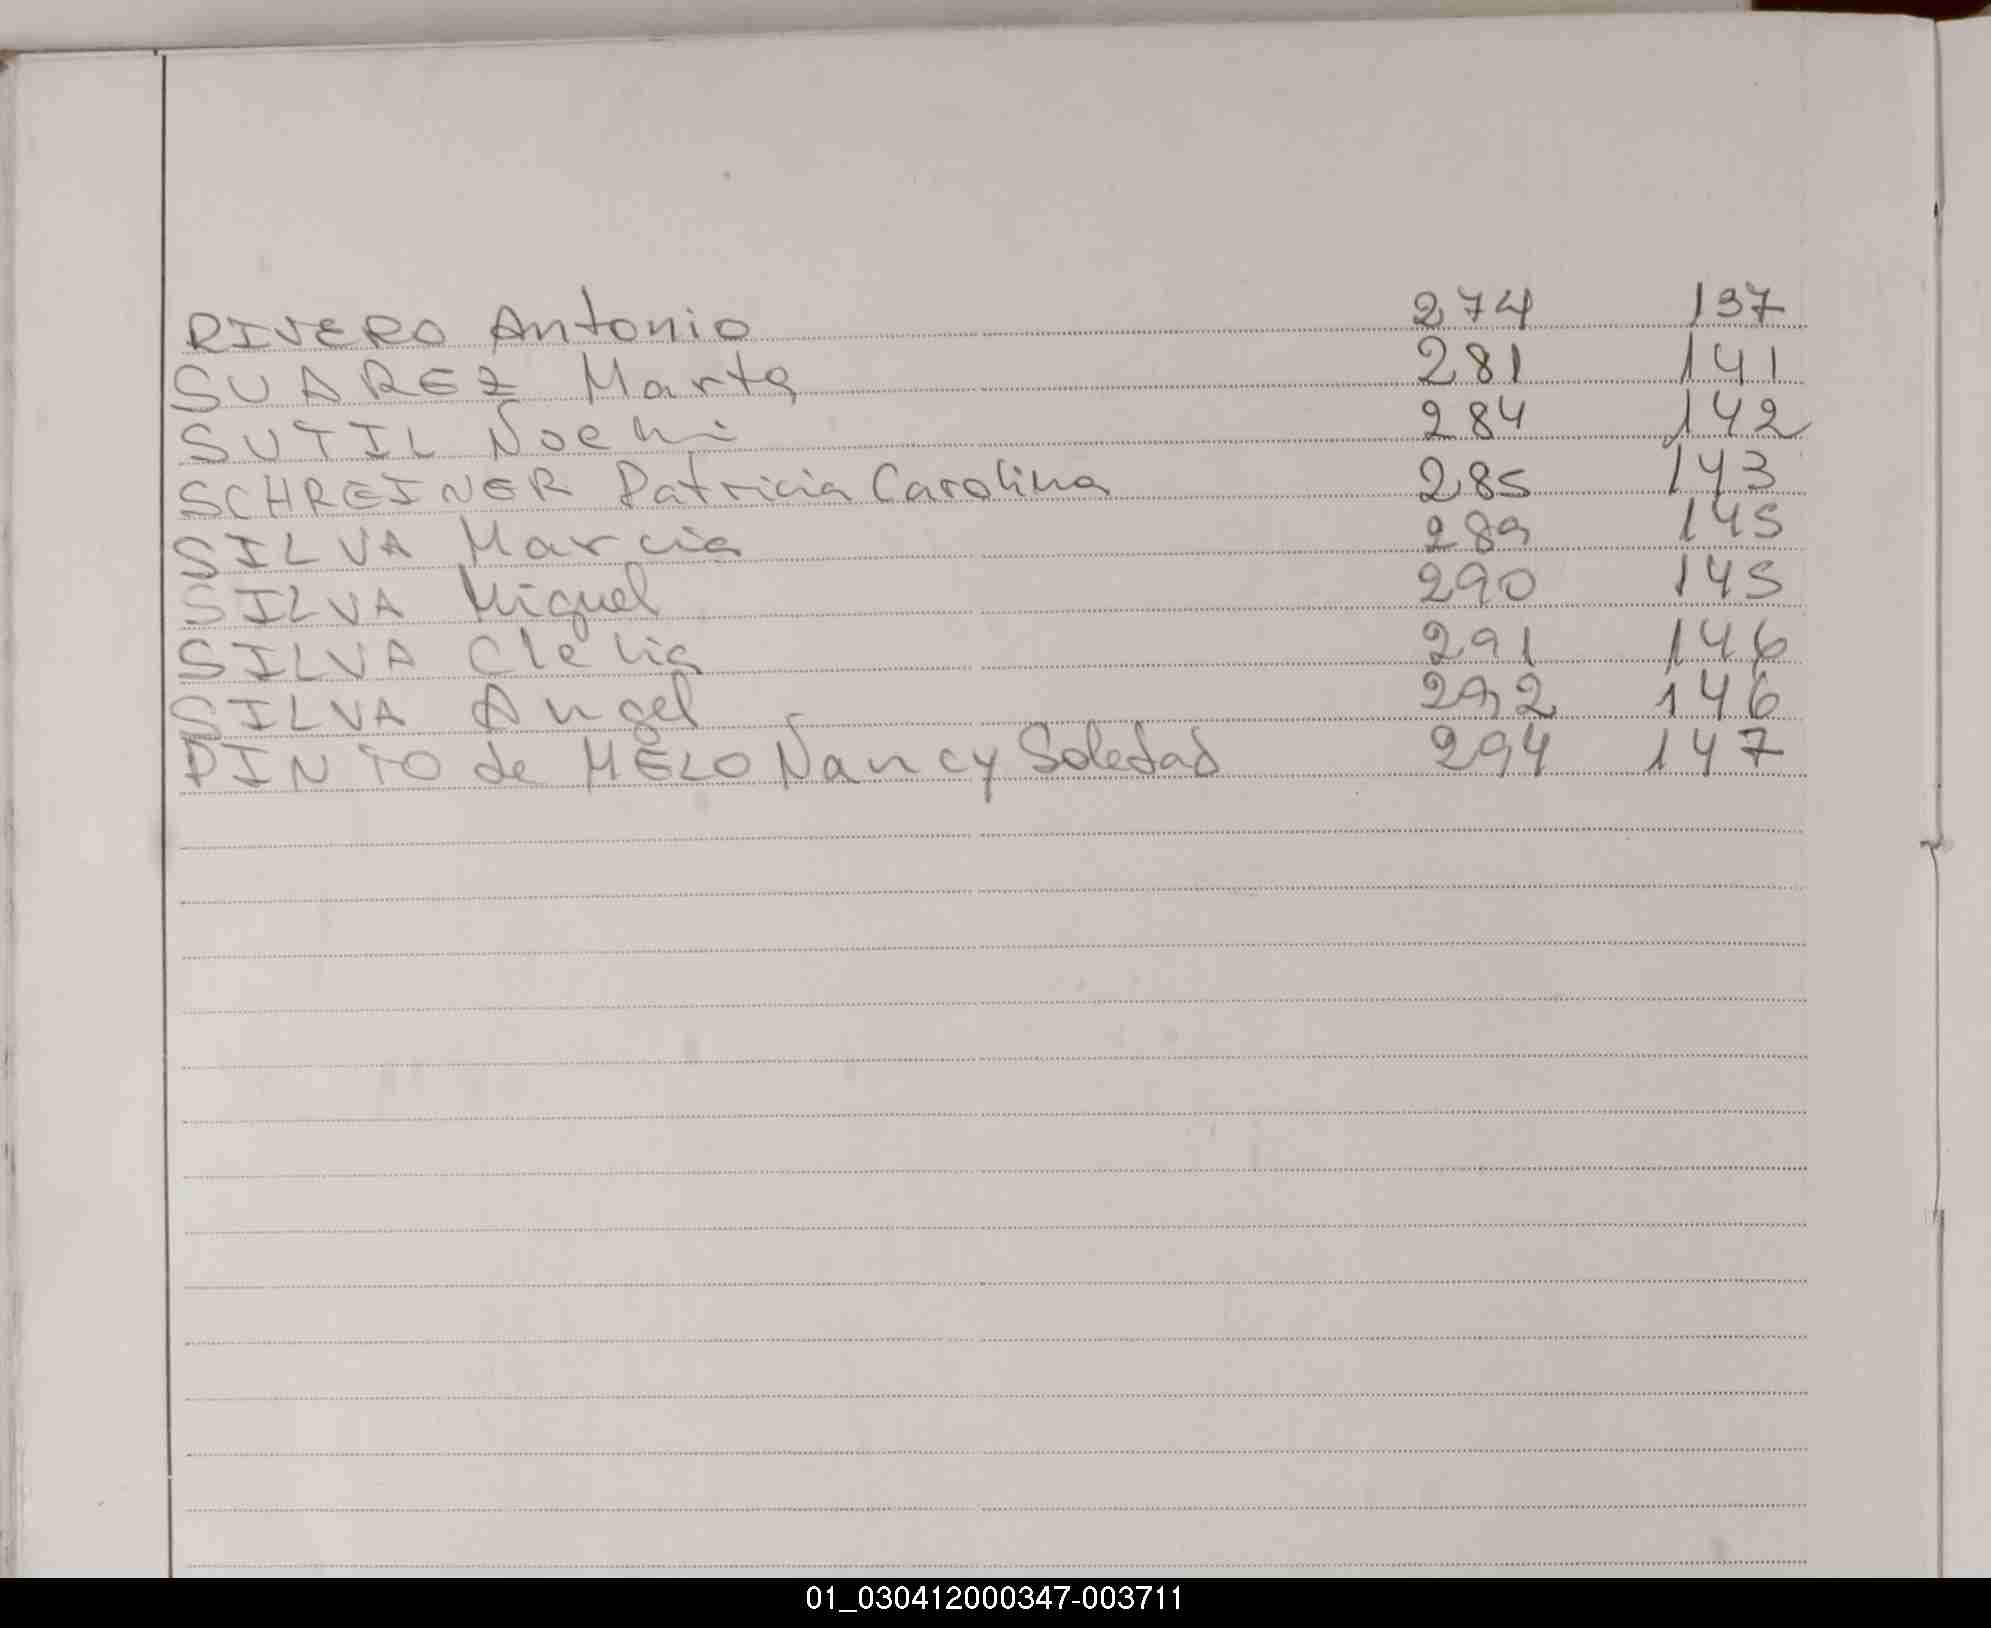 RIVERO Antonio 274 137
SUAREZ Marta 281 141
SUTIL Noemi 284 142
SCHREINER Patricia Carolina 285 143
SILVA Marcia 289 145
SILVA Miguel 290 145
SILVA Clelia 291 146
SILVA Angel 292 146
PINTO de MELO Nancy Soledad 294 147
01_030412000347-003711